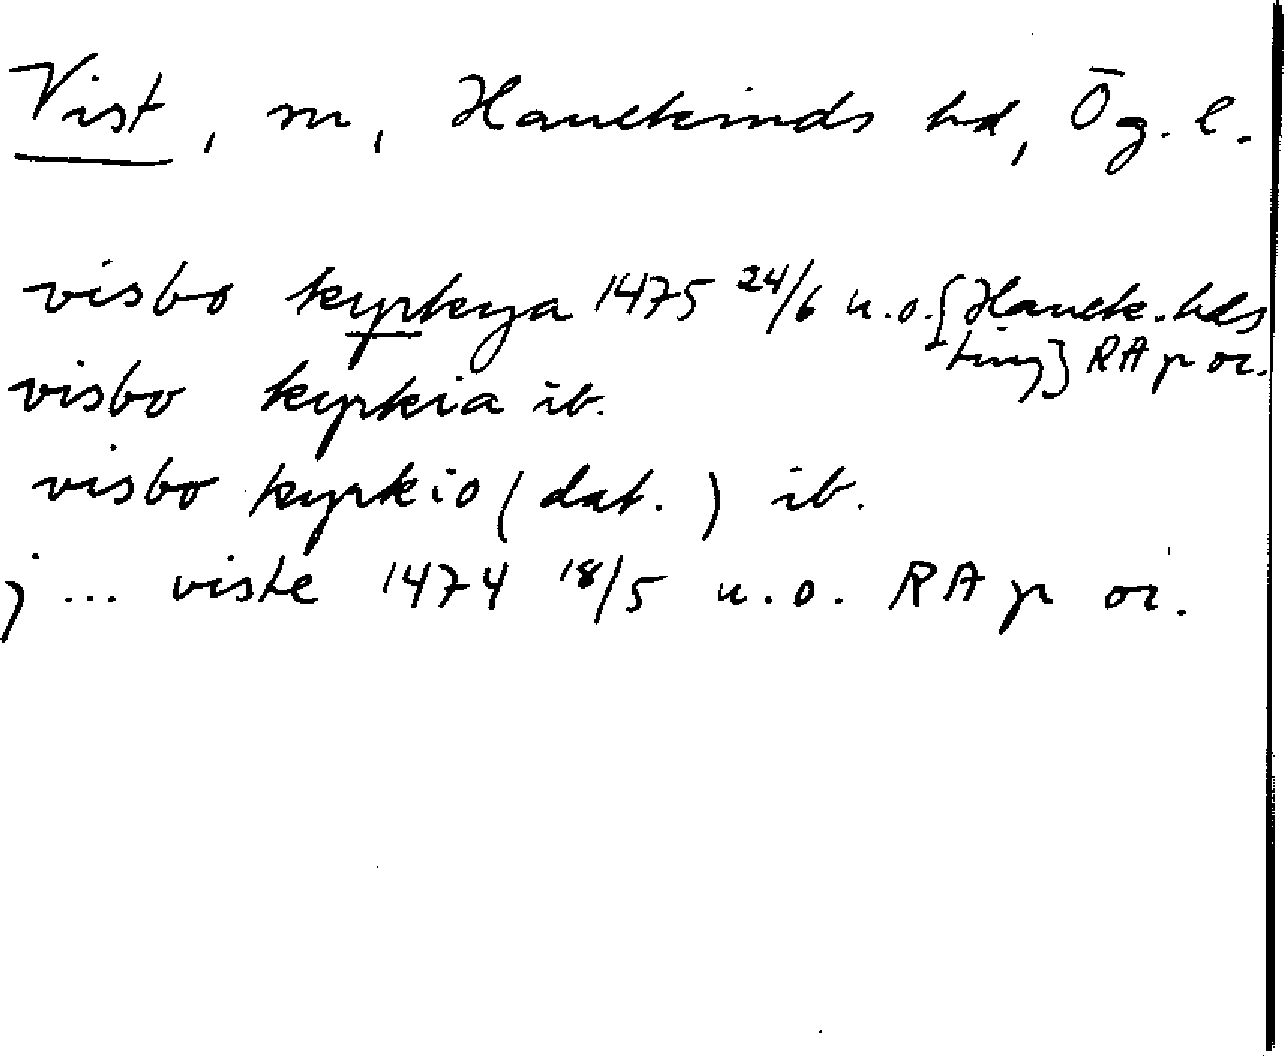 Vist, sn, Hanekinds hd, Ög. l.
visbo kyrkya 1475 24/6 u.o. [Hanek. hds
ting] RA p or.
visbo kyrkia ib.
visbo kyrkio (dat.) ib.
j ... viste 1474 18/5 u.o. RA p or.